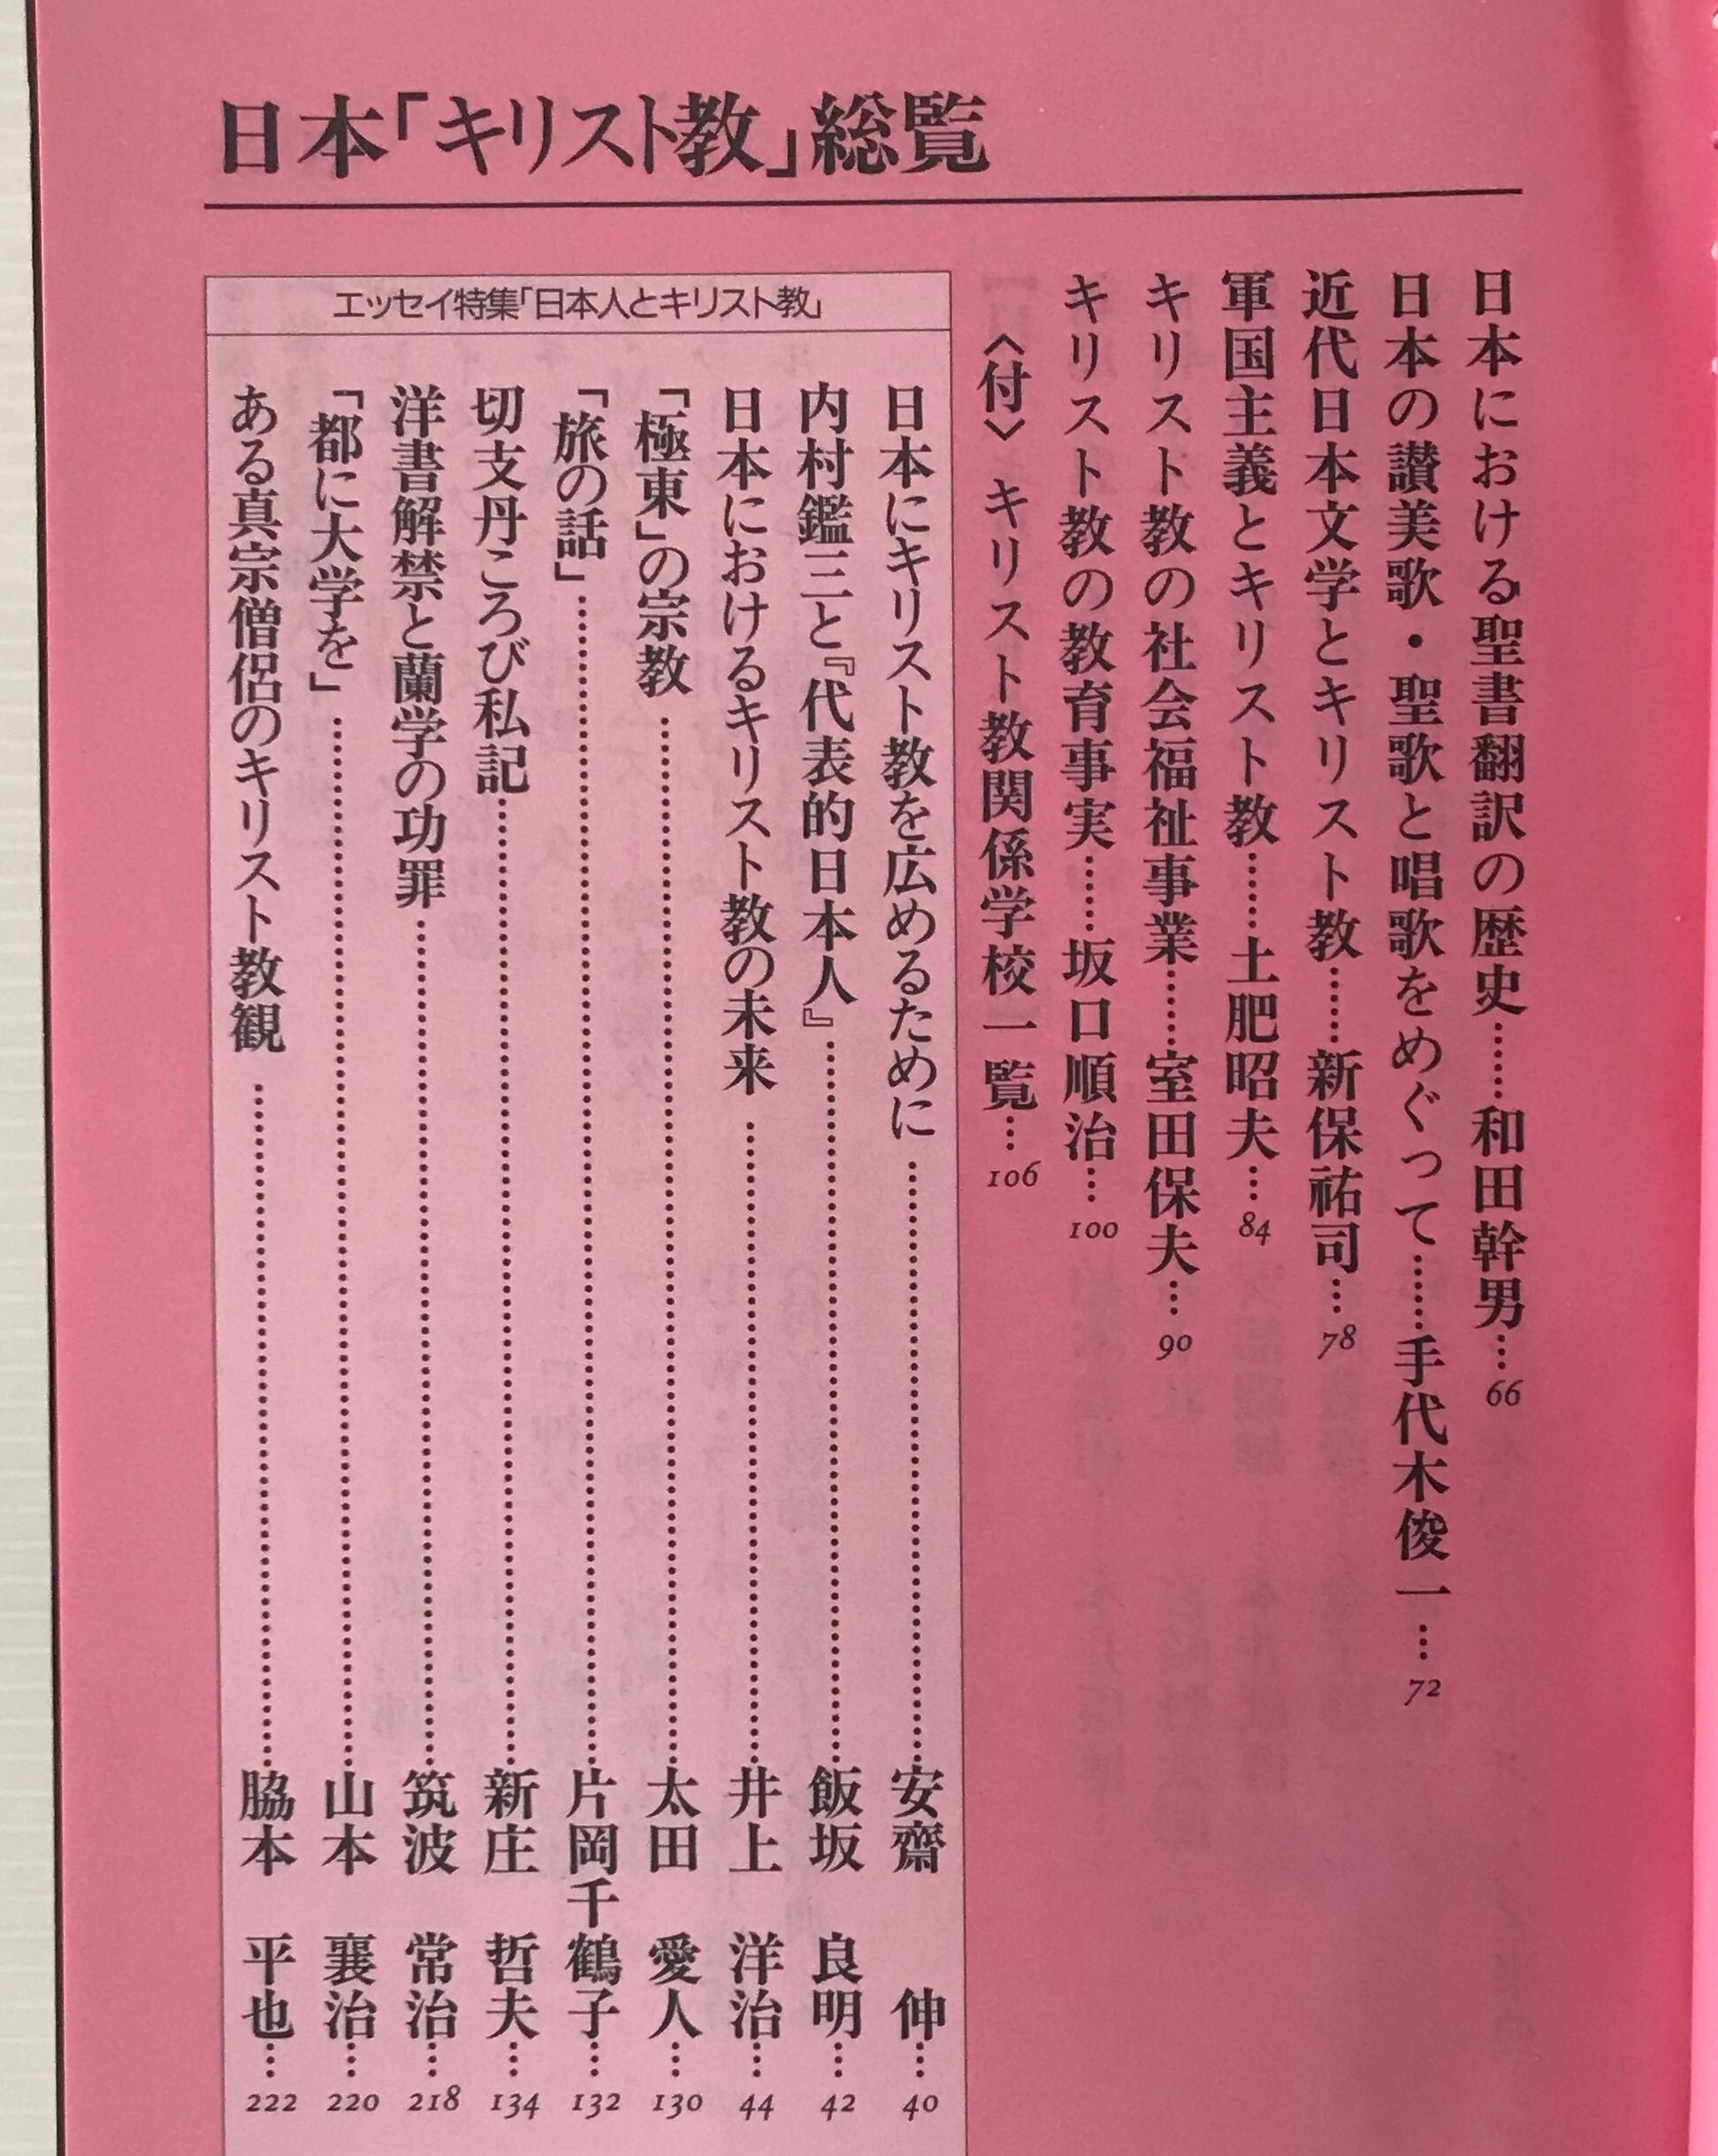 日本「キリスト教」総覧
日本における聖書翻訳の歴史……和田幹男…66
日本の讃美歌・聖歌と唱歌をめぐって……手代木俊一…72
近代日本文学とキリスト教……新保祐司…78
軍国主義とキリスト教……土肥昭夫…84
キリスト教の社会福祉事業……室田保夫…90
キリスト教の教育事実……坂口順治…100
〈付〉キリスト教関係学校一覧…106
エッセイ特集「日本人とキリスト教」
日本にキリスト教を広めるために……安齋 伸…40
内村鑑三と『代表的日本人』……飯坂良明…42
日本におけるキリスト教の未来……井上洋治…44
「極東」の宗教……太田愛人…130
「旅の話」……片岡千鶴子…132
切支丹ころび私記……新庄哲夫…134
洋書解禁と蘭学の功罪……筑波常治…218
「都に大学を」……山本襄治…220
ある真宗僧侶のキリスト教観……脇本平也…222